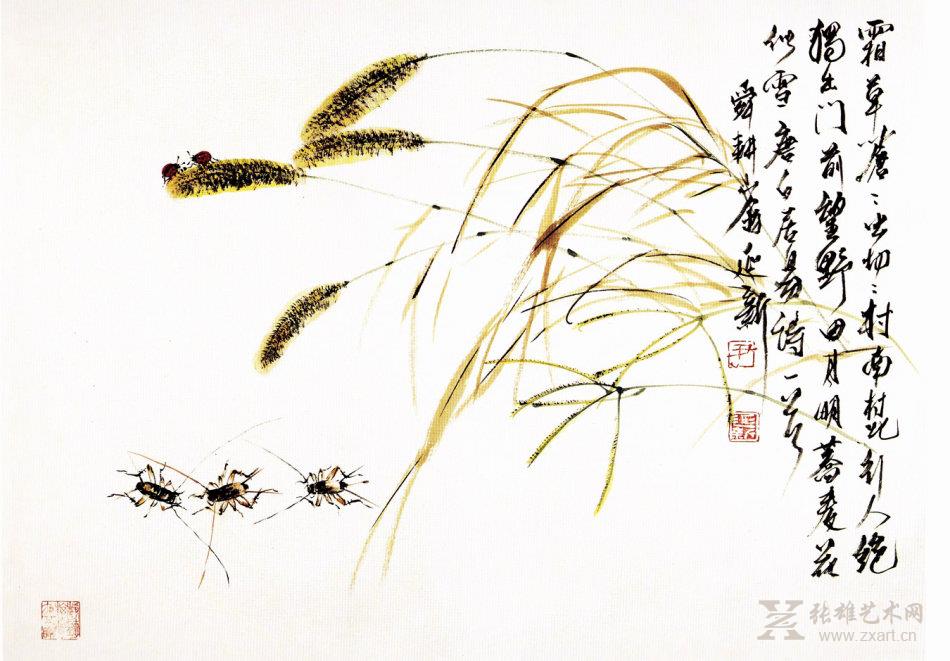 霜草蒼〻虫切〻村南村北行人絕
獨出门前望野田月明蕎麦花
似雪唐白居易詩一首
舜耕山翁延新
张雄艺术网
www.zxart.cn